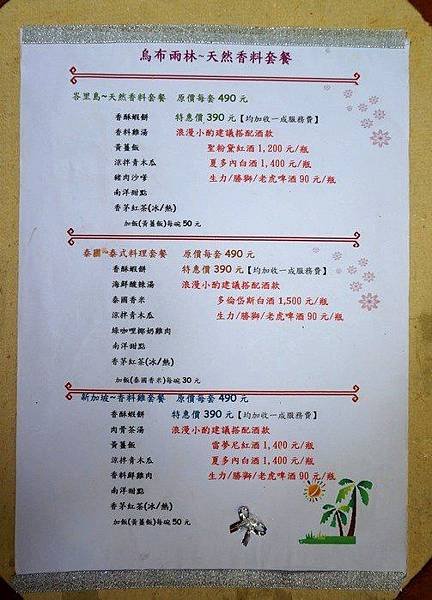 烏布雨林~天然香料套餐
峇里島~天然香料套餐 原價每套490元
香酥蝦餅 特惠價390元【均加收一成服務費】
香料雞湯 浪漫小酌建議搭配酒款
黃薑飯 聖粉黛紅酒1,200元/瓶
涼拌青木瓜 夏多內白酒1,400元/瓶
豬肉沙嗲 生力/勝獅/老虎啤酒90元/瓶
南洋甜點
香茅紅茶(冰/熱)
加飯(黃薑飯)每碗50元
泰國~泰式料理套餐 原價每套490元
香酥蝦餅 特惠價390元【均加收一成服務費】
海鮮酸辣湯 浪漫小酌建議搭配酒款
泰國香米 多倫岱斯白酒1,500元/瓶
涼拌青木瓜 生力/勝獅/老虎啤酒90元/瓶
綠咖哩椰奶雞肉
南洋甜點
香茅紅茶(冰/熱)
加飯(泰國香米)每碗30元
新加坡~香料雞套餐 原價每套490元
香酥蝦餅 特惠價390元【均加收一成服務費】
肉骨茶湯 浪漫小酌建議搭配酒款
黃薑飯 雷夢尼紅酒1,400元/瓶
涼拌青木瓜 夏多內白酒1,400元/瓶
香料鮮雞肉 生力/勝獅/老虎啤酒90元/瓶
南洋甜點
香茅紅茶(冰/熱)
加飯(黃薑飯)每碗50元